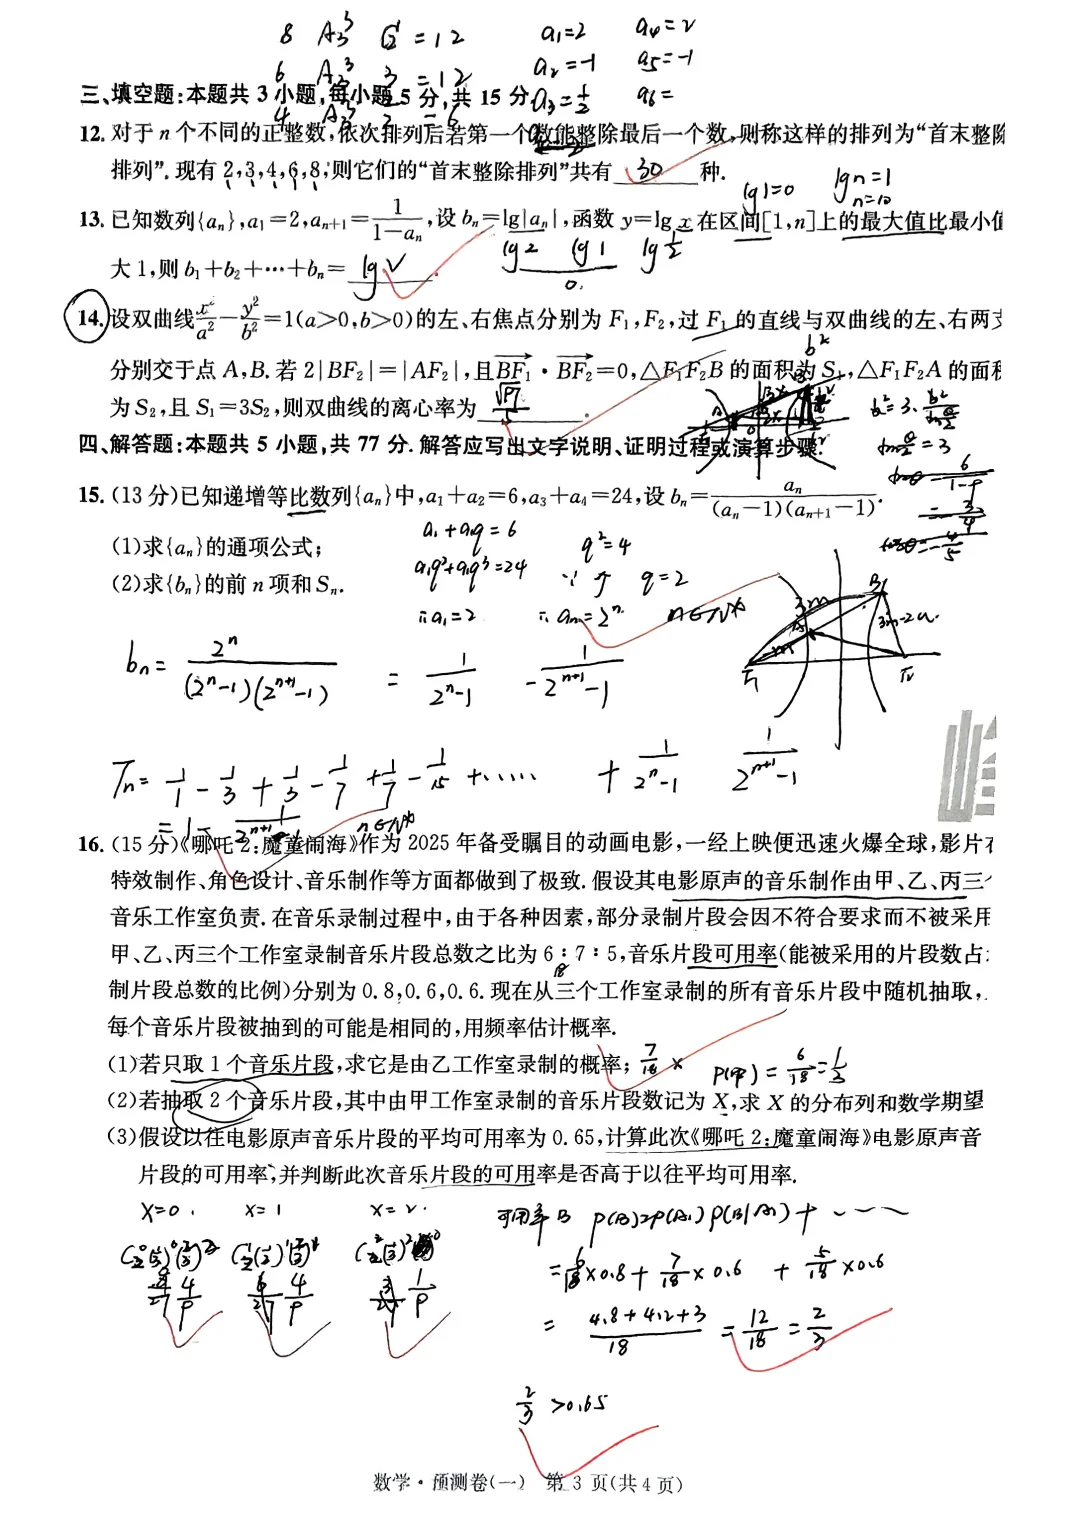 8 A₃³ C₂¹ = 12 a₁=2 a₄=2
6 A₃³ 3 = 12 a₂=-1 a₅=-1
三、填空题:本题共 3 小题,每小题 5 分,共 15 分. a₃=1/2 a₆=
4 A₃³ = 6
12. 对于 n 个不同的正整数,依次排列后若第一个数能整除最后一个数,则称这样的排列为“首末整除
排列”. 现有 2,3,4,6,8,则它们的“首末整除排列”共有 30 种.
lg1=0 lgn=1 n=10
13. 已知数列{aₙ},a₁=2,aₙ₊₁=1/(1-aₙ),设 bₙ=lg|aₙ|,函数 y=lg x 在区间[1,n]上的最大值比最小值
大 1,则 b₁+b₂+⋯+bₙ= lg2 .
lg2 lg1 lg1/2
0.
14. 设双曲线 x²/a² - y²/b² =1(a>0,b>0)的左、右焦点分别为 F₁,F₂,过 F₁ 的直线与双曲线的左、右两支
分别交于点 A,B. 若 2|BF₂|=|AF₂|,且 BF₁ · BF₂=0,△F₁F₂B 的面积为 S₁,△F₁F₂A 的面积
为 S₂,且 S₁=3S₂,则双曲线的离心率为 √17/5 .
四、解答题:本题共 5 小题,共 77 分. 解答应写出文字说明、证明过程或演算步骤.
15. (13 分)已知递增等比数列{aₙ}中,a₁+a₂=6,a₃+a₄=24,设 bₙ= aₙ/((aₙ-1)(aₙ₊₁-1)).
(1)求{aₙ}的通项公式;
(2)求{bₙ}的前 n 项和 Sₙ.
a₁+a₁q=6 q²=4
a₁q²+a₁q³=24 ∵ 个 q=2
∴a₁=2 ∴aₙ=2ⁿ n∈N*
3m B A m 3m-2a F₁ F₂
bₙ= 2ⁿ/((2ⁿ-1)(2ⁿ⁺¹-1)) = 1/(2ⁿ-1) - 1/(2ⁿ⁺¹-1)
Tₙ= 1/1 - 1/3 + 1/3 - 1/7 + 1/7 - 1/15 + ⋯⋯ + 1/(2ⁿ-1) 1/(2ⁿ⁺¹-1)
= 1 - 1/(2ⁿ⁺¹-1) n∈N*
16. (15 分)《哪吒 2:魔童闹海》作为 2025 年备受瞩目的动画电影,一经上映便迅速火爆全球,影片在
特效制作、角色设计、音乐制作等方面都做到了极致. 假设其电影原声的音乐制作由甲、乙、丙三个
音乐工作室负责. 在音乐录制过程中,由于各种因素,部分录制片段会因不符合要求而不被采用
甲、乙、丙三个工作室录制音乐片段总数之比为 6∶7∶5,音乐片段可用率(能被采用的片段数占
18
制片段总数的比例)分别为 0.8,0.6,0.6. 现在从三个工作室录制的所有音乐片段中随机抽取,
每个音乐片段被抽到的可能是相同的,用频率估计概率.
(1)若只取 1 个音乐片段,求它是由乙工作室录制的概率; 7/18 × P(甲)=6/18=1/3
(2)若抽取 2 个音乐片段,其中由甲工作室录制的音乐片段数记为 X,求 X 的分布列和数学期望
(3)假设以往电影原声音乐片段的平均可用率为 0.65,计算此次《哪吒 2:魔童闹海》电影原声音
片段的可用率,并判断此次音乐片段的可用率是否高于以往平均可用率.
X=0. X=1 X=2. 可用率 B P(B)=P(A₁)P(B|A₁)+ ⋯
C₂⁰(1/3)⁰(2/3)² C₂¹(1/3)¹(2/3)¹ C₂²(1/3)²
= 6/18×0.8+7/18×0.6 + 5/18×0.6
4/9 4/9 1/9
= (4.8+4.2+3)/18 = 12/18 = 2/3
2/3 >0.65
数学·预测卷(一) 第 3 页(共 4 页)